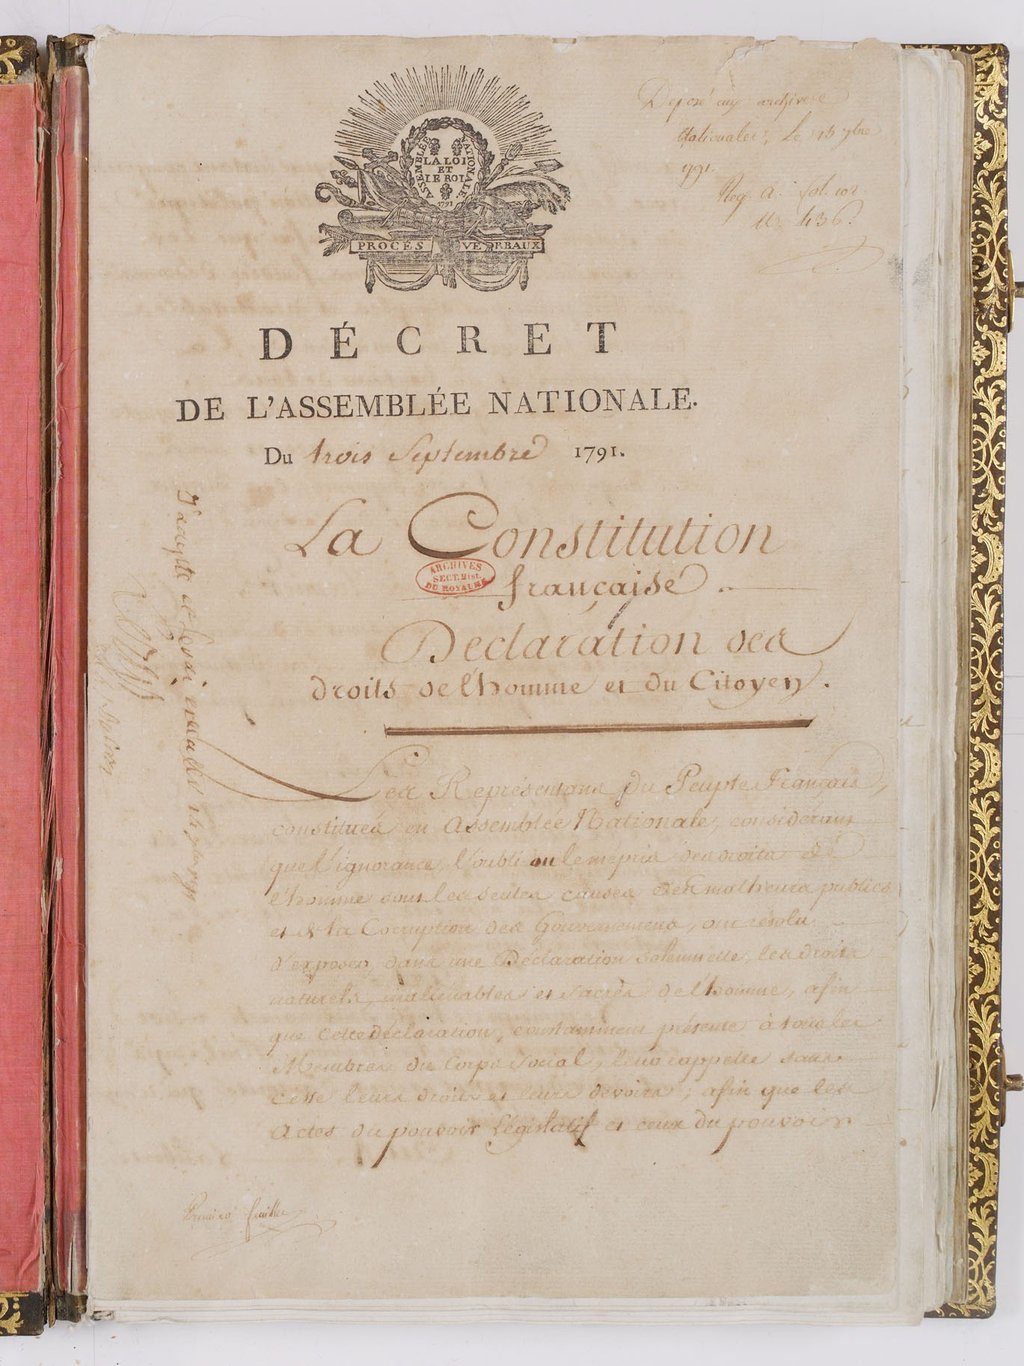 Déposé aux archives
nationales, le 15 7bre
1791.
Reg. A. fol. 102
n. 436.
ASSEMBLÉE NATIONALE
LA LOI
ET
LE ROI
1791
PROCÈS VERBAUX
DÉCRET
DE L'ASSEMBLÉE NATIONALE.
Du trois Septembre 1791.
La Constitution
française.
ARCHIVES
SECT. Hist.
DU ROYAUME
Déclaration des
droits de l'homme et du Citoyen.
J'accepte et ferai exécuter
Les Représentans du Peuple Français,
constitués en Assemblée Nationale, considérant
que l'ignorance, l'oubli ou le mépris des droits de
l'homme sont les seules causes des malheurs publics
et de la Corruption des Gouvernemens, ont résolu
d'exposer, dans une Déclaration Solemnelle, les droits
naturels, inaliénables et Sacrés de l'homme, afin
que cette déclaration, constamment présente à tous les
Membres du Corps Social, leur rappelle sans
cesse leurs droits et leurs devoirs; afin que les
Actes du pouvoir Législatif et ceux du pouvoir
Premiere feuille